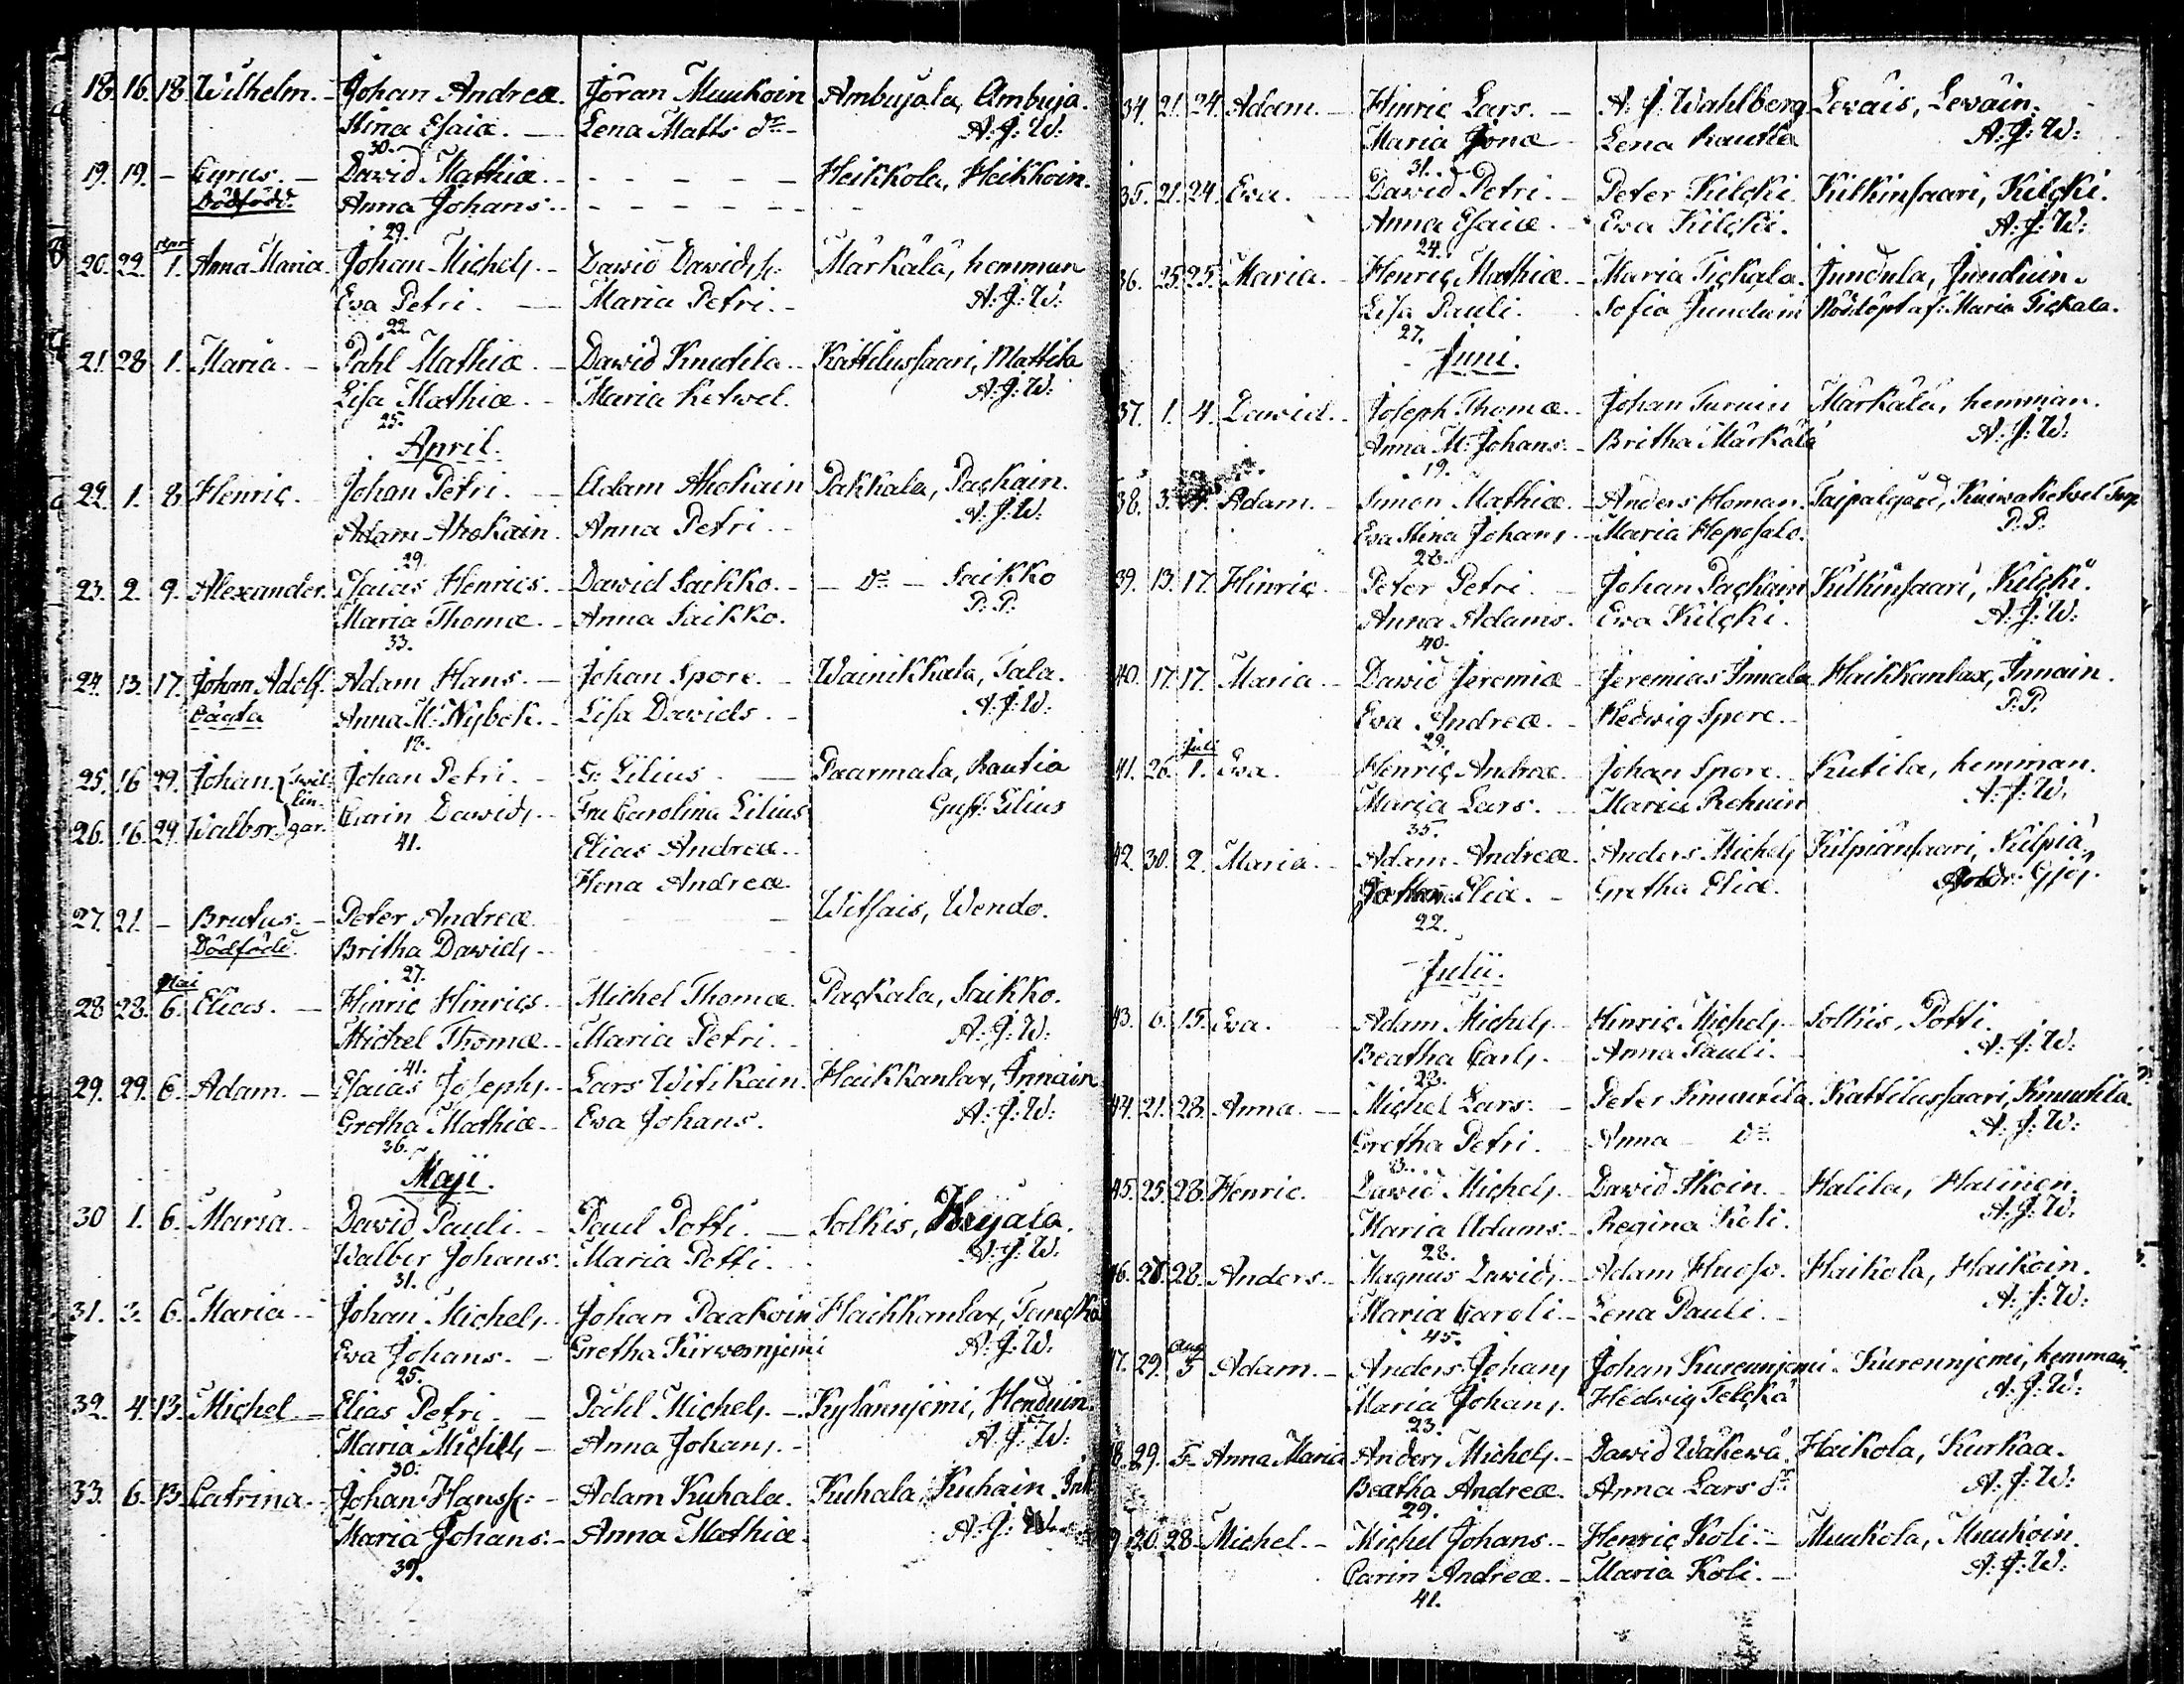 18. 16. 18. Wilhelm. - Johan Andreæ. Jöran Muukoin Ambujala, Ambuja.
Stina Esaiæ. - Lena Matts dr. - A: J: W:
30.
19. 19. - Cyrus. - David Mathiæ. - - - - - - Heikkola, Heikkoin.
Dödfödd. Anna Johans. - - - - - - -
29.
April
20. 22. 1. Anna Maria Johan Michels. - David Davids. Märkälä, hemman
Eva Petri. - Maria Petri. - A: J: W:
22.
21. 28. 1. Maria. - Påhl Mathiæ. - David Knutila. - Kattilussaari, Mattila
Lisa Mathiæ. - Maria Ketwel. A: J: W:
25.
April.
22. 1. 8. Henric. Johan Petri. - Adam Ahokain Pakkala, Packain.
Adam Ahokain. Anna Petri. - A: J: W:
29.
23. 2. 9. Alexander. Esaias Henrics. - David Saikko. - - do - Saikko
Maria Thomæ. - Anna Saikko. P: P:
33.
24. 13. 17. Johan Adolf. Adam Hans. - Johan Spore. - Wainikkala, Tala.
Oäcta Anna M: Nybek. - Lisa Davids. - A: J: W:
18.
25. 16. 29. Johan. Twil Johan Petri. - G: Lilius. - Paarmala, Rautia
lin Carin Davids. - Fru Carolina Lilius Gust: Lilius
26. 16. 29. Walbor. gar. 41. Elias Andreæ. -
Stena Andreæ.
27. 21. - Brutus. - Peter Andreæ - - Witsais, Wendo.
Dödfödd. Britha Davids. - - - -
27.
Maj
28. 28. 6. Elias. - Hinric Hinrics. - Michel Thomæ. Packala, Saikko.
Michel Thomæ. - Maria Petri. - A: J: W:
41.
29. 29. 6. Adam. - Esaias Josephs. - Lars Witikain. Haikkanlax, Innain
Gretha Mathiæ. - Eva Johans. A: J: W:
36.
Maji.
30. 1. 6. Maria. - David Pauli. - Paul Potti. - Solkis, Kujala.
Walber Johans. Maria Potti. A: J: W:
31.
31. 3. 6. Maria. - Johan Michels. Johan Paakoin Haikkanlax,
Eva Johans. - Gretha Kirwesnjemi A: J: W:
25.
32. 4. 13. Michel. - Elias Petri. - Påhl Michels. - Kylännjemi, Henduin.
Maria Michels. - Anna Johans. - A: J: W:
30.
33. 6. 13. Catrina. - Johan Hanss: - Adam Kuhala. Kuhala, Kuhain. Inh
Maria Johans. - Anna Mathiæ. A: J: W:
39.
34. 21. 24. Adam. - Hinric Lars. - A: J: Wahlberg Leväis, Leväin.
Maria Jonæ - Lena Rautia A: J: W:
31.
35. 21. 24. Eva. - David Petri. - Peter Kilcki. Kilkinsaari, Kilcki.
Anna Esaiæ. - Eva Kilcki. A: J: W:
24.
36. 25. 25. Maria. - Henric Mathiæ. - Maria Tickala. Jundula, Junduin.
Lisa Pauli. Sofia Junduin Nöddöpt af: Maria Tickala.
27.
Juni.
37. 1. 4. David. - Joseph Thomæ. - Johan Turuin Märkälä, hemman.
Anna M: Johans. - Britha Märkälä A: J: W:
19.
38. 3. Adam. - Simon Mathiæ. - Anders Homan. Taipalgård, Kuiwaketvel Torp
Eva Stina Johans. - Maria Heposalo. P: P:
28.
39. 13. 17. Hinric. - Peter Petri. - Johan Packain Kilkinsaari, Kilcki.
Anna Adams. Eva Kilcki. A: J: W:
40.
40. 17. 17. Maria. - David Jeremiæ - Jeremias Innala Haikkanlax, Innain.
Eva Andreæ. - Hedwig Spore. - P: P:
29.
Juli
41. 26. 1. Eva. Henric Andreæ. Johan Spore. Kutila, hemman.
Maria Lars. - Maria Rehuin A: J: W:
35.
42. 30. 2. Maria. - Adam Andreæ. Anders Michels Kilpiänsaari, Kilpiä.
Eliæ. - Gretha Eliæ.
22.
Julii.
43. 6. 15. Eva. Adam Michels. Hinric Michels. Solkis, Potti.
Beatha Carls. - Anna Pauli. - A: J: W:
23.
44. 21. 28. Anna. - Michel Lars. - Peter Knuutila. Kattilussaari, Knuutila.
Gretha Petri. Anna - do A: J: W:
23.
45. 25. 28. Henric. David Michels. - David Ikoin. Halila, Hainen.
Maria Adams. Regina Koli. A: J: W:
28.
46. 28. 28. Anders. - Magnus Davids. - Adam Huoso. Haikola, Haikoin.
Maria Caroli. - Lena Pauli. - A: J: W:
45.
Aug
47. 29. 5. Adam. - Anders Johans Johan Kurennjemi. Kurennjemi, hemman.
Maria Johans. Hedwig Telckä A: J: W:
23.
48. 29. 5. Anna Maria Anders Michels. - David Wäkewä. Haikola, Kurkaa.
Beatha Andreæ. Anna Lars dr A: J: W:
29.
49. 30. 28. Michel. - Michel Johans. - Henric Koli. - Muukola, Muukoin.
Carin Andreæ. - Maria Koli. - A: J: W:
41.